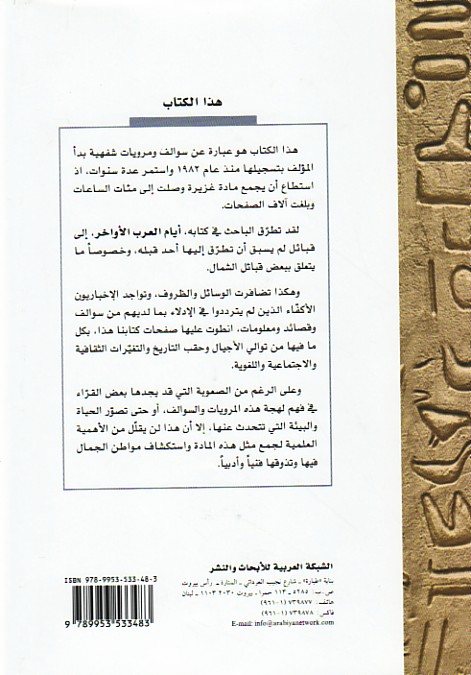 هذا الكتاب
هذا الكتاب هو عبارة عن سوالف ومرويات شفهية بدأ
المؤلف بتسجيلها منذ عام ١٩٨٢ واستمر عدة سنوات، اذ
استطاع أن يجمع مادة غزيرة وصلت إلى مئات الساعات
وبلغت آلاف الصفحات.
لقد تطرّق الباحث في كتابه، أيام العرب الأواخر، إلى
قبائل لم يسبق أن تطرّق إليها أحد قبله، وخصوصاً ما
يتعلق ببعض قبائل الشمال.
وهكذا تضافرت الوسائل والظروف، وتواجد الإخباريون
الأكفّاء الذين لم يترددوا في الإدلاء بما لديهم من سوالف
وقصائد ومعلومات، انطوت عليها صفحات كتابنا هذا، بكل
ما فيها من توالي الأجيال وحقب التاريخ والتغيّرات الثقافية
والاجتماعية واللغوية.
وعلى الرغم من الصعوبة التي قد يجدها بعض القرّاء
في فهم لهجة هذه المرويات والسوالف، أو حتى تصوّر الحياة
والبيئة التي تتحدث عنها، إلا أن هذا لن يقلّل من الأهمية
العلمية لجمع مثل هذه المادة واستكشاف مواطن الجمال
فيها وتذوقها فنياً وأدبياً.
الشبكة العربية للأبحاث والنشر
بناية «طبارة» ـ شارع نجيب العرداتي ـ المنارة ـ رأس بيروت
ص.ب: ٥٢٨٥ ـ ١١٣ حمرا ـ بيروت ٢٠٣٠ ١١٠٣ ـ لبنان
هاتف: ٧٣٩٨٧٧ (١-٩٦١)
فاكس: ٧٣٩٨٧٨ (١-٩٦١)
E-mail: info@arabiyanetwork.com
ISBN 978-9953-533-48-3
9 789953 533483